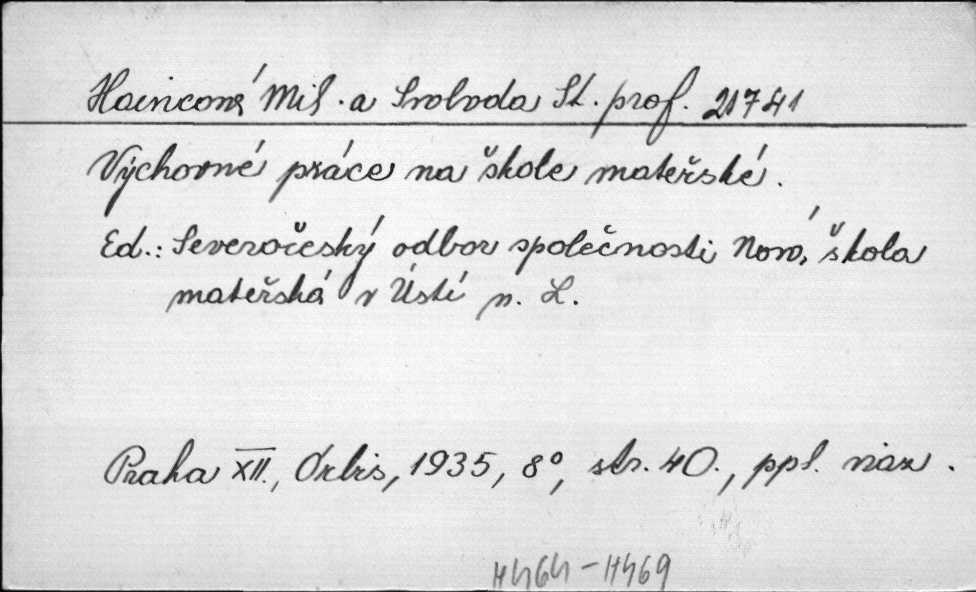 Haincová Mil. a Svoboda St. prof. 21741
Výchovné práce na škole mateřské.
Ed.: Severočeský odbor společnosti Nová škola
mateřská v Ústí n. L.
Praha XII., Orbis, 1935, 8°, str. 40., ppl. viaz.
4464-4469